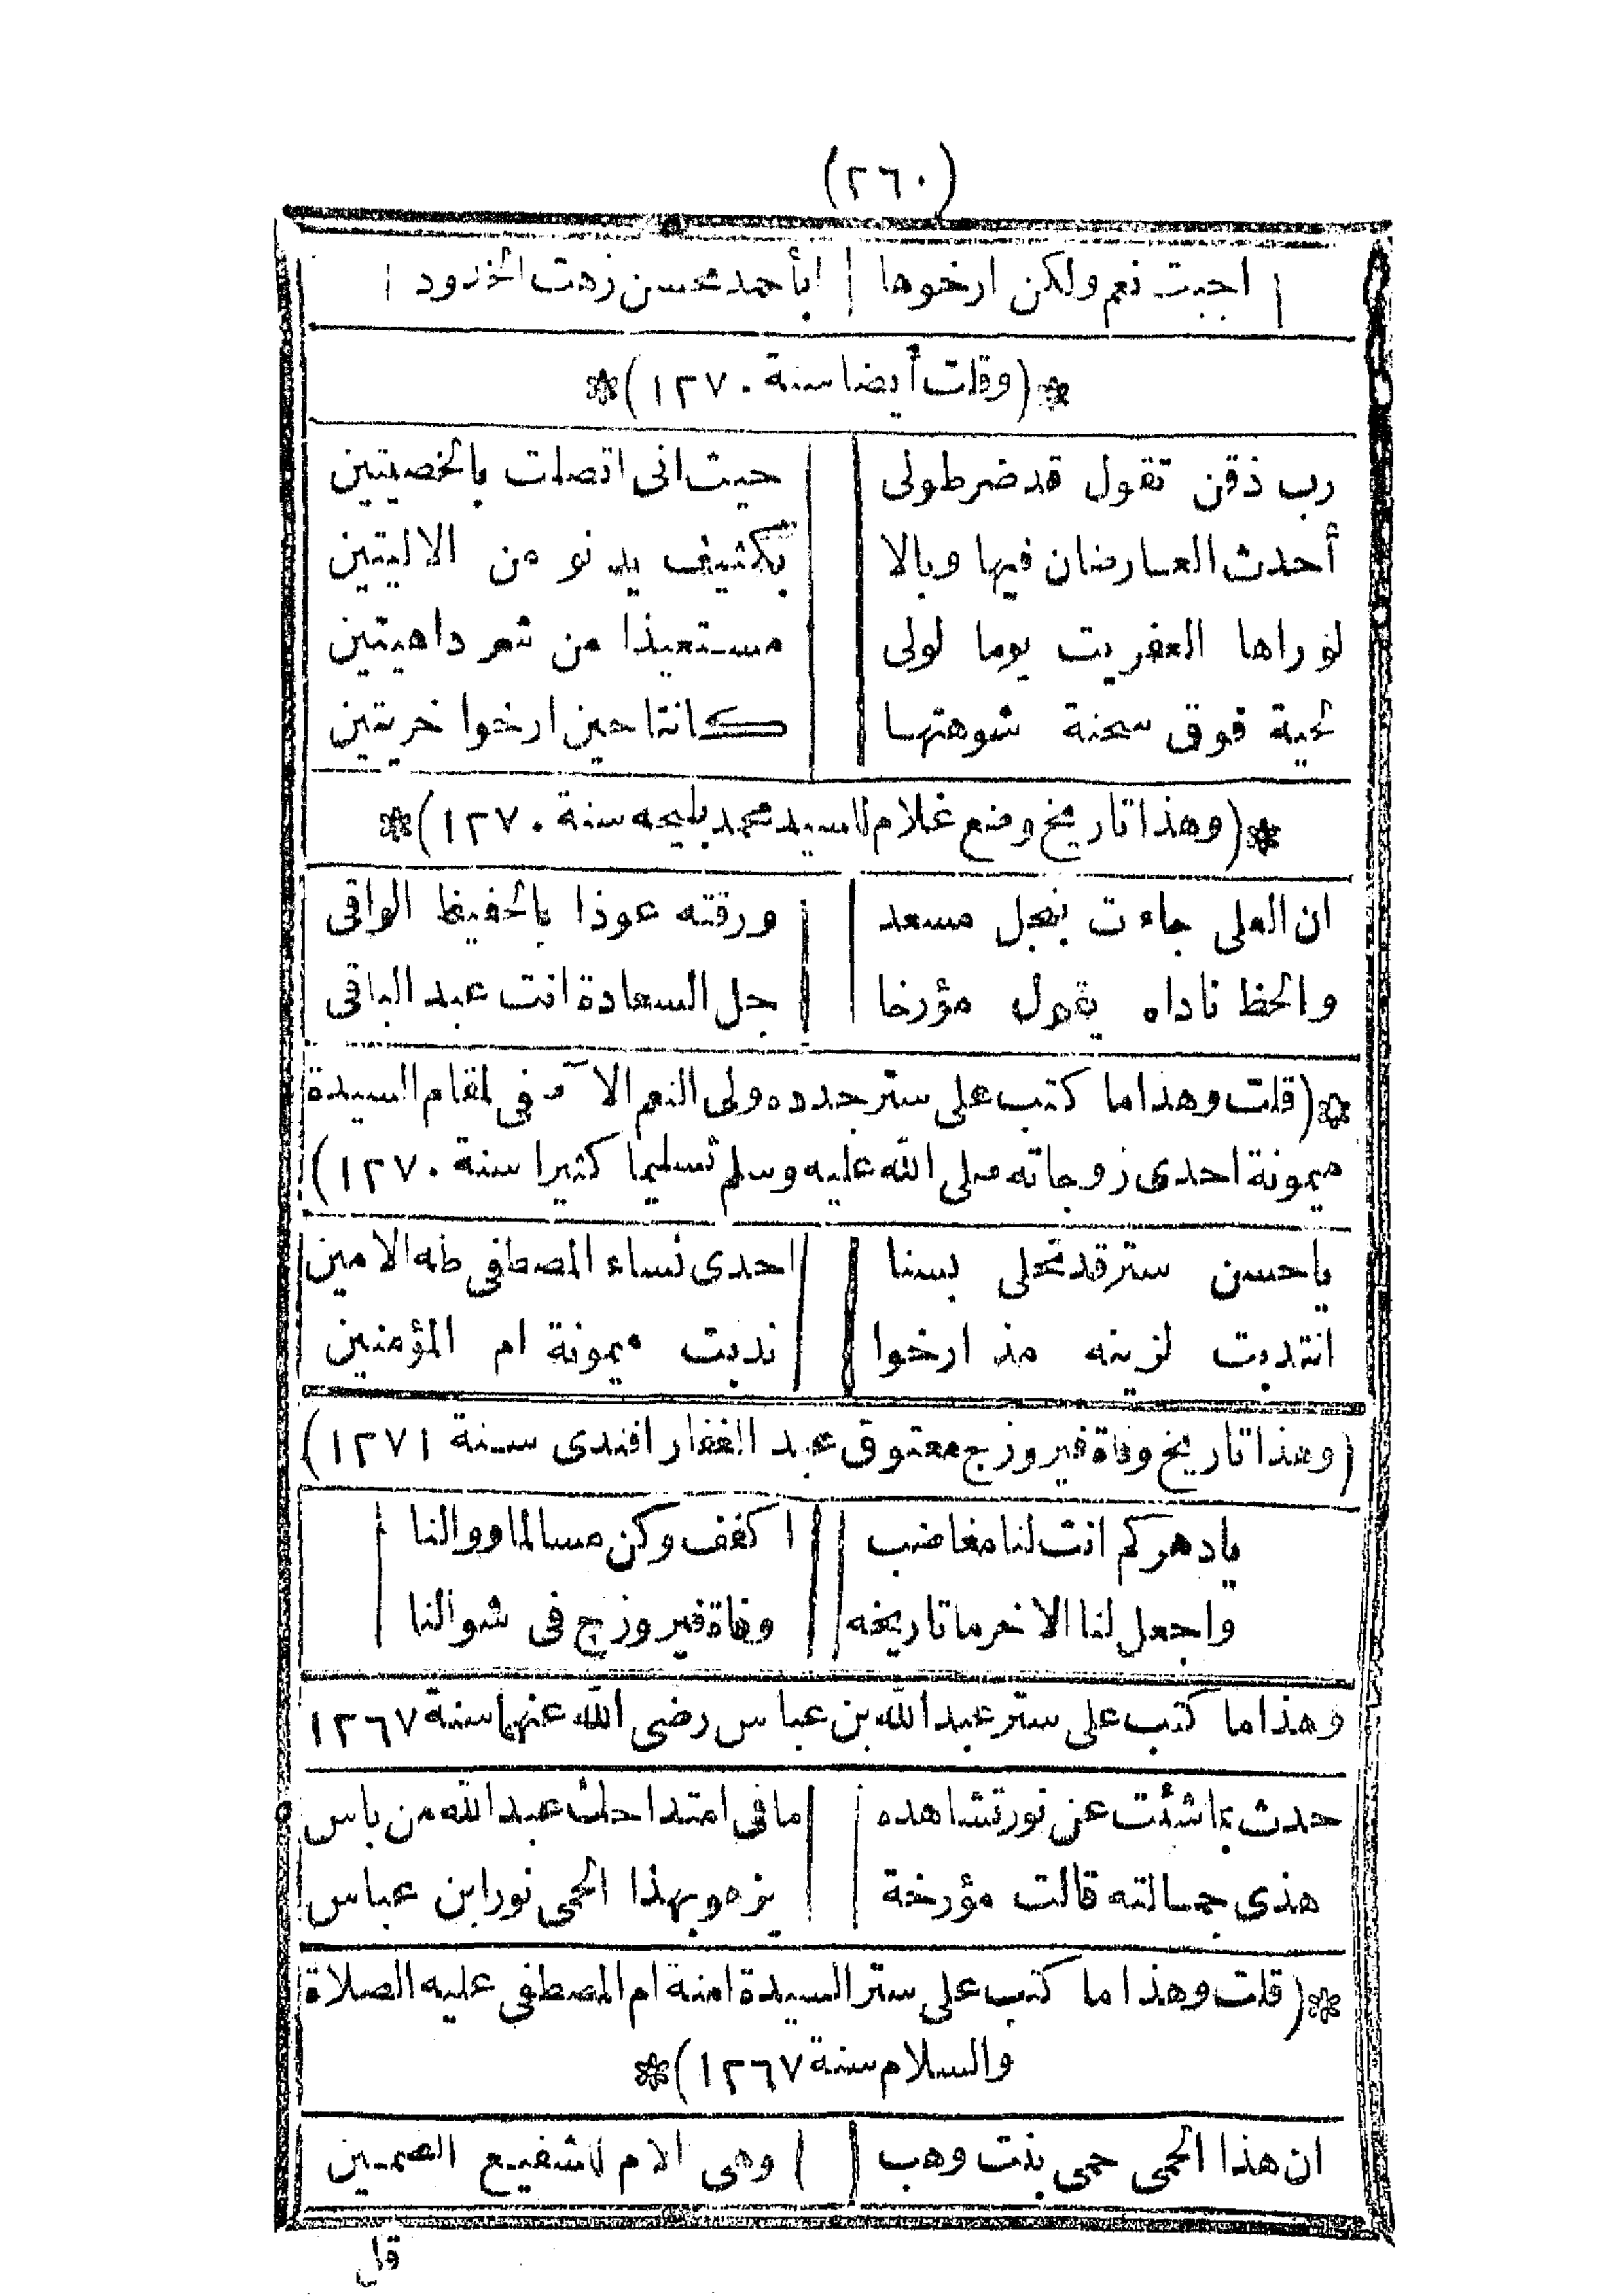 (٢٦٠)
اجبت نعم ولكن ارخوها ابأحمد محسن زهت الخدود
*(وقلت أيضا سنة ١٢٧٠)*
رب ذقن تقول قد ضرطولى حيث انى اتصلت بالخصيتين
أحدث العارضان فيها وبالا بكثيف يدنو من الاليتين
لوراها العفريت يوما لولى مستعيذا من شعر داهيتين
لحية فوق سحنة شوهتها كانتا حين ارخوا خريتين
*(وهذا تاريخ وضع غلام للسيد محمد بليجه سنة ١٢٧٠)*
ان العلى جاءت بنجل مسعد ورقته عوذا بالحفيظ الواقى
والحظ ناداه يقول مؤرخا جل السعادة انت عبد الباقى
*(قلت وهذا ما كتب على ستر جدده ولى النعم الا فى لمقام السيدة
ميمونة احدى زوجاته صلى الله عليه وسلم تسليما كثيرا سنة ١٢٧٠)
ياحسن ستر قد تحلى بسنا احدى نساء المصطفى طه الامين
انتدبت لزينه مذ ارخوا ندبت ميمونة ام المؤمنين
(وهذا تاريخ وفاة فيروزج معتوق عبد الغفار افندى سنة ١٢٧١)
يادهركم انت لنا مغاضب اكفف وكن مسالما ووالنا
واجعل لنا الاخر ما تاريخه وفاة فيروزج فى شوالنا
وهذا ما كتب على ستر عبد الله بن عباس رضى الله عنهما سنة ١٢٦٧
حدث بماشئت عن نور تشاهده مافى امتداحك عبد الله من باس
هذى جمالته قالت مؤرخة يزهو بهذا الحمى نور ابن عباس
*(قلت وهذا ما كتب على ستر السيدة امنة ام المصطفى عليه الصلاة
والسلام سنة ١٢٦٧)*
ان هذا الحمى حمى بنت وهب وهى الام للشفيع الضمين
قل